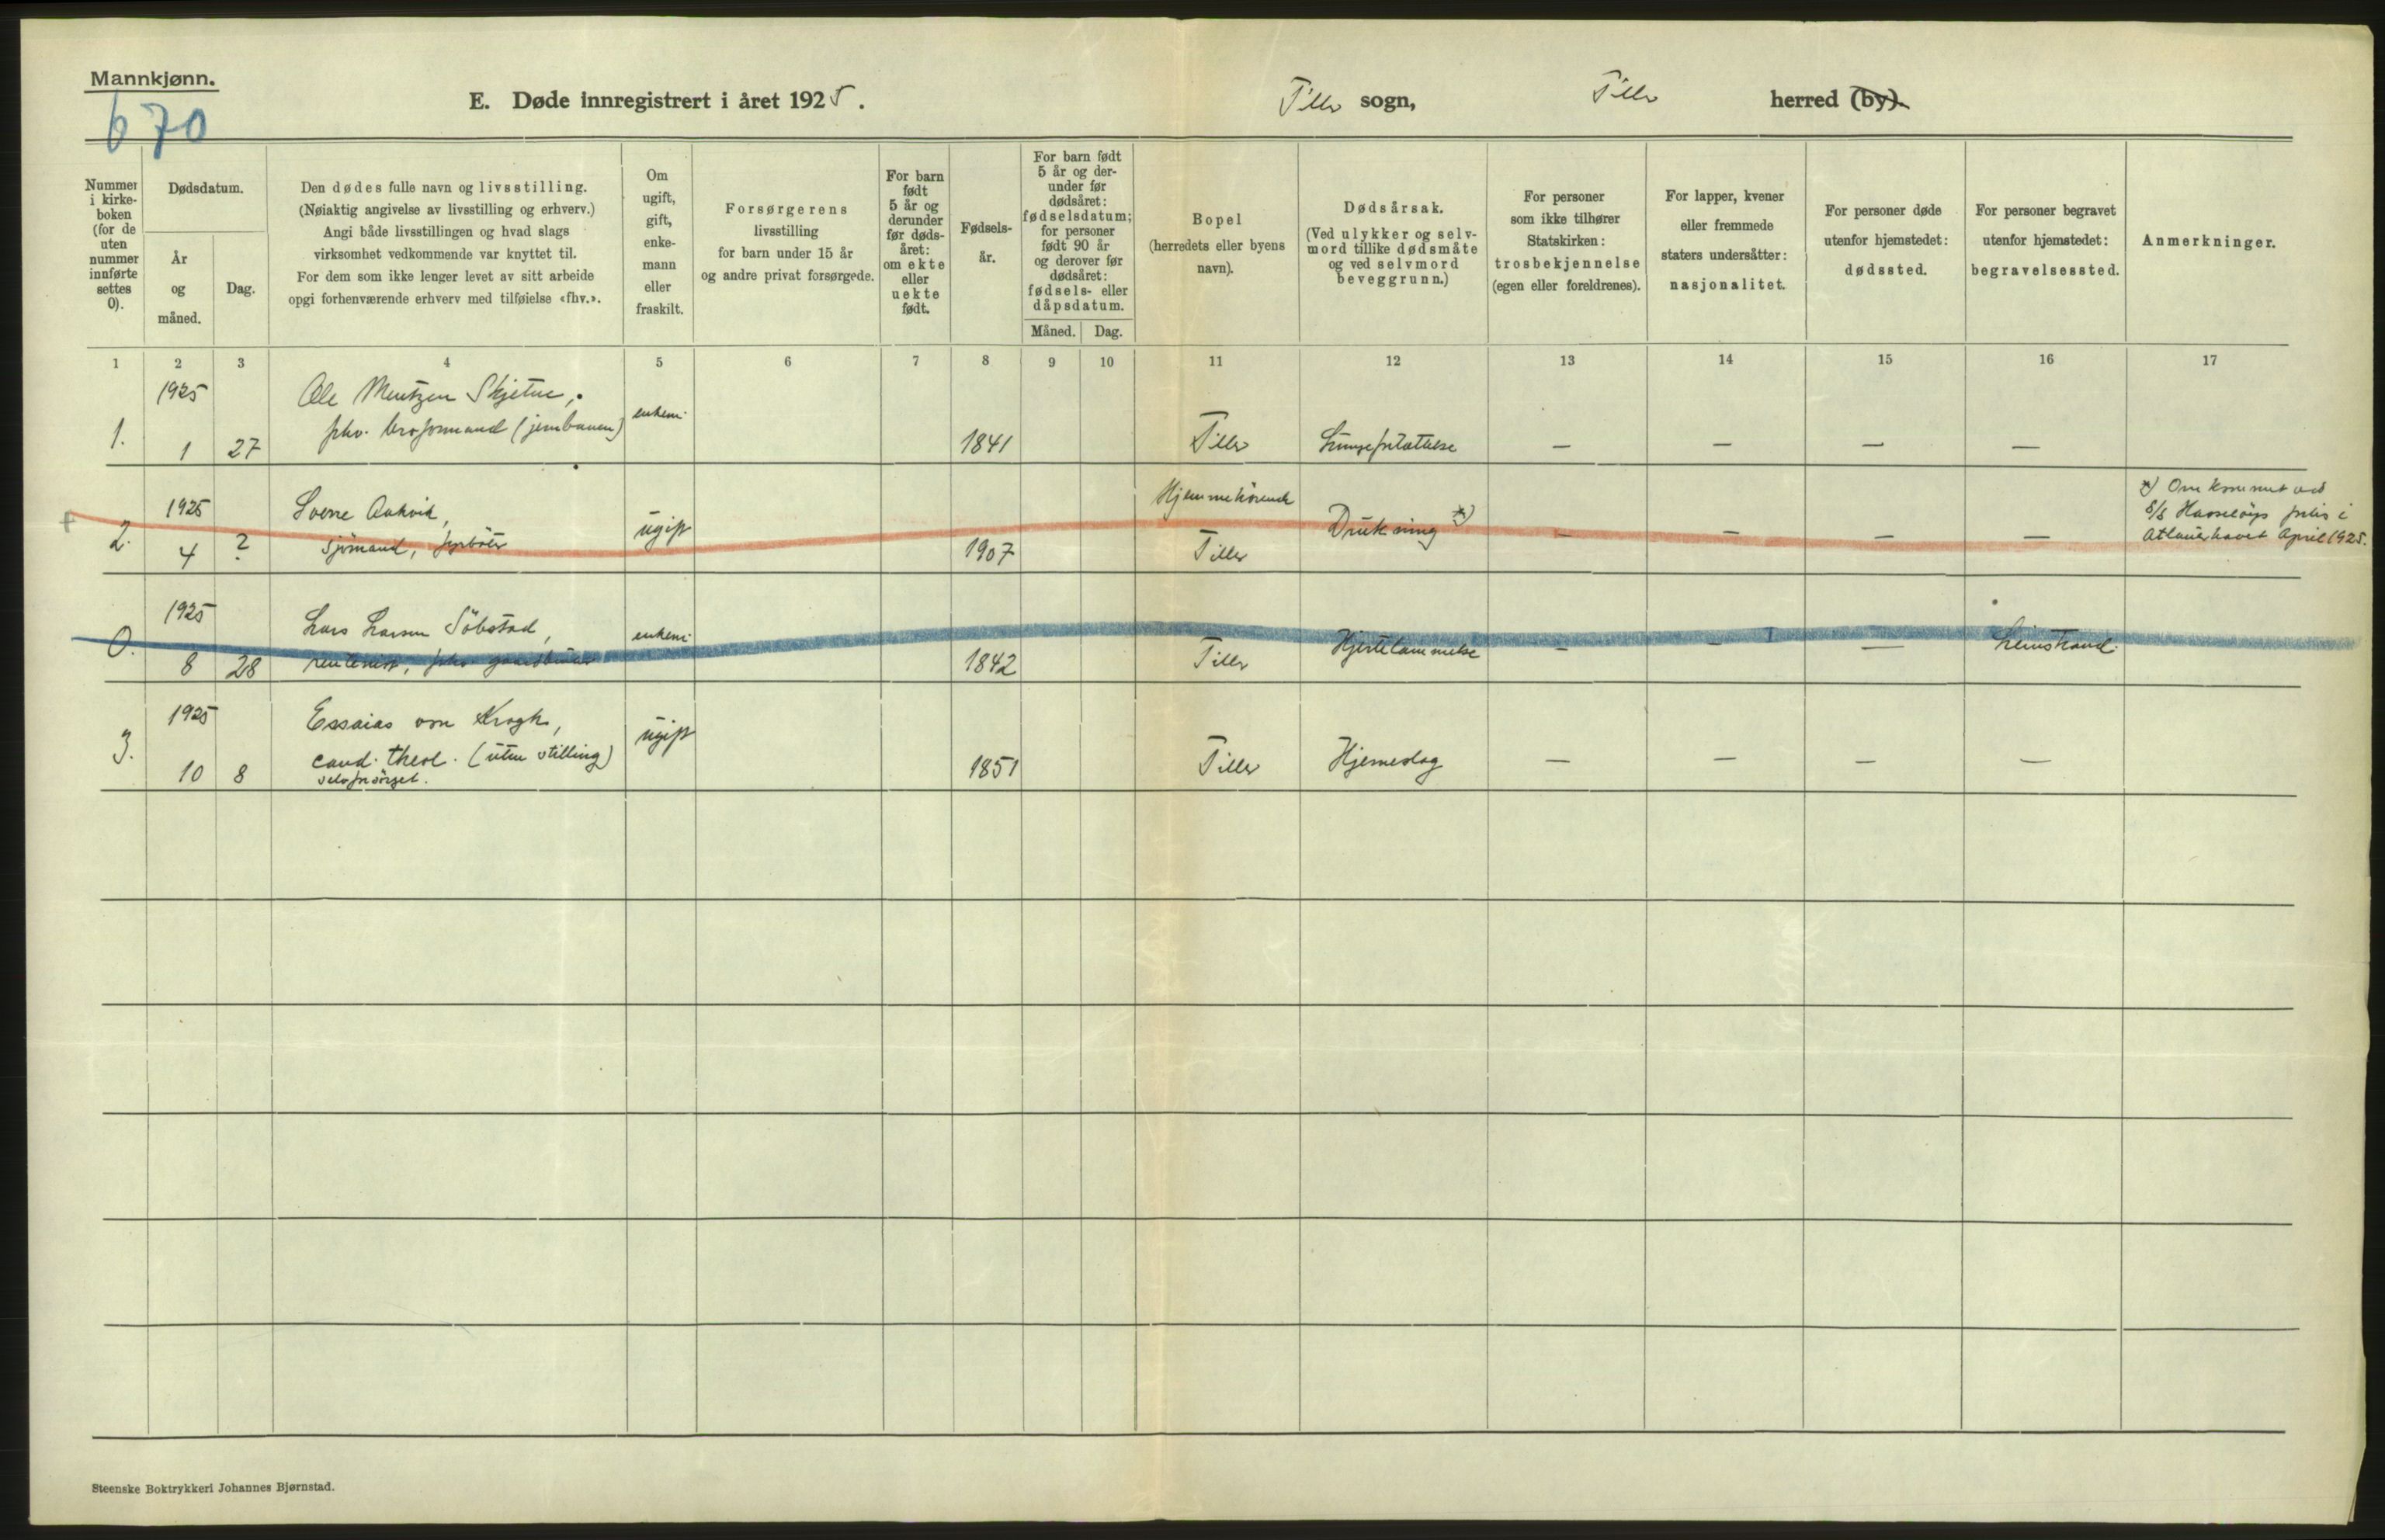 Mannkjønn.
670
E. Døde innregistrert i året 1925.
Tiller sogn, Tiller herred (by).
Nummer i kirkeboken (for de uten nummer innførte settes 0).
Dødsdatum.
År og måned.
Dag.
Den dødes fulle navn og livsstilling.
(Nøiaktig angivelse av livsstilling og erhverv.)
Angi både livsstillingen og hvad slags
virksomhet vedkommende var knyttet til.
For dem som ikke lenger levet av sitt arbeide
opgi forhenværende erhverv med tilføielse «fhv.».
Om ugift, gift, enkemann eller fraskilt.
Forsørgerens
livsstilling
for barn under 15 år
og andre privat forsørgede.
For barn født 5 år og derunder før dødsåret: om ekte eller uekte født.
Fødselsår.
For barn født 5 år og derunder før dødsåret: fødselsdatum; for personer født 90 år og derover før dødsåret: fødsels- eller dåpsdatum.
Måned. Dag.
Bopel
(herredets eller byens
navn).
Dødsårsak.
(Ved ulykker og selvmord tillike dødsmåte og ved selvmord beveggrunn.)
For personer
som ikke tilhører
Statskirken:
trosbekjennelse
(egen eller foreldrenes).
For lapper, kvener
eller fremmede
staters undersåtter:
nasjonalitet.
For personer døde
utenfor hjemstedet:
dødssted.
For personer begravet
utenfor hjemstedet:
begravelsessted.
Anmerkninger.
1 2 3 4 5 6 7 8 9 10 11 12 13 14 15 16 17
1925 Ole Mentzen Skjetne,
fhv. broformand (jernbanen) enkem.
1. 1 27 1841 Tiller Lungebetændelse — — — —
1925 Sverre Aakvik, Hjemmehörende
2. 4 ? sjömand, fyrböter ugift 1907 Tiller Drukning *) — — — —
*) Omkommet ved
S/S Hasselöys forlis i
Atlanterhavet April 1925.
1925 Lars Larsen Söbstad,
0. 8 28 rentenist, fhv. gaardbruker enkem. 1842 Tiller Hjertelammelse — — — Leinstrand.
1925 Essaias von Krogh,
cand. theol. (uten stilling) ugift
3. 10 8 selvforsörget. 1851 Tiller Hjerneslag — — — —
Steenske Boktrykkeri Johannes Bjørnstad.